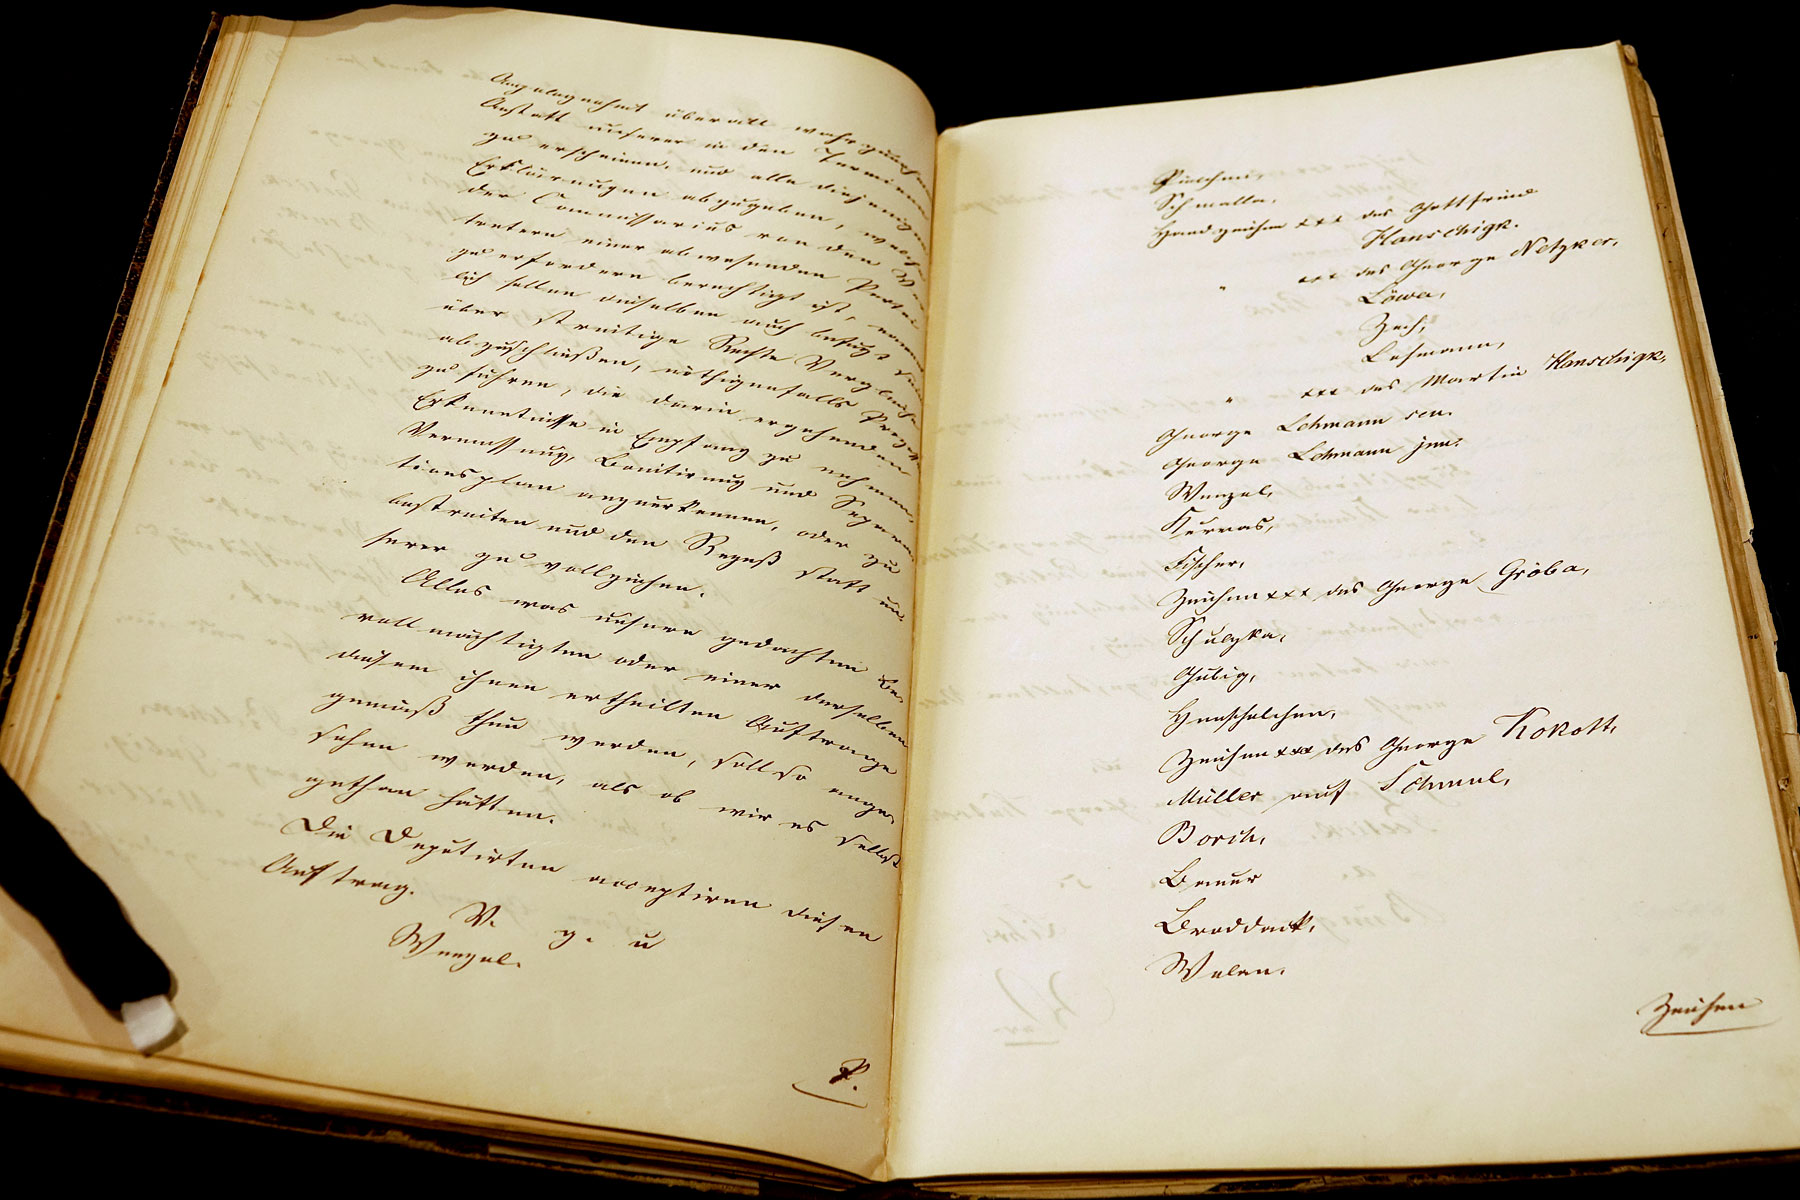 Angelegenheit überall wahrzunehmen
Anstatt unserer in den Terminen
zu erscheinen, und alle diejenigen
Erklärungen abzugeben, welche
der Commissarius von den Ver
tretern einer abwesenden Partei
zu erfordern berechtigt ist,
lich sollen dieselben auch befugt sein
über streitige Rechte Vergleiche
abzuschließen, nöthigenfalls Prozeß
zu führen, die darin ergehenden
Erkenntnisse in Empfang zu nehmen,
Vermessung, Bonitirung und Separa
tionsplan anzuerkennen, oder zu
bestreiten und den Rezeß statt un
serer zu vollziehen.
Alles was unsere gedachten Be
vollmächtigten oder einer derselben
diesem ihnen ertheilten Auftrage
gemäß thun werden, soll so ange
sehen werden, als ob wir es selbst
gethan hätten.
Die Deputirten acceptiren diesen
Auftrag.
V. g. u
Wenzel.
P.
Schmalla,
Handzeichen xxx des Gottfried
Hanschigk.
" xxx des George Netzker,
Löwa,
Zech,
Lehmann,
" xxx des Martin Hanschigk,
George Lehmann sen.
George Lehmann jun.
Wenzel,
Kurras,
Fischer,
Zeichen xxx des George Gröba,
Schulzka,
Gubig,
Henschelchen,
Zeichen xxx des George Kokott,
Müller auf Schmul,
Borch,
Bauer
Broddack,
Welan.
Zeichen